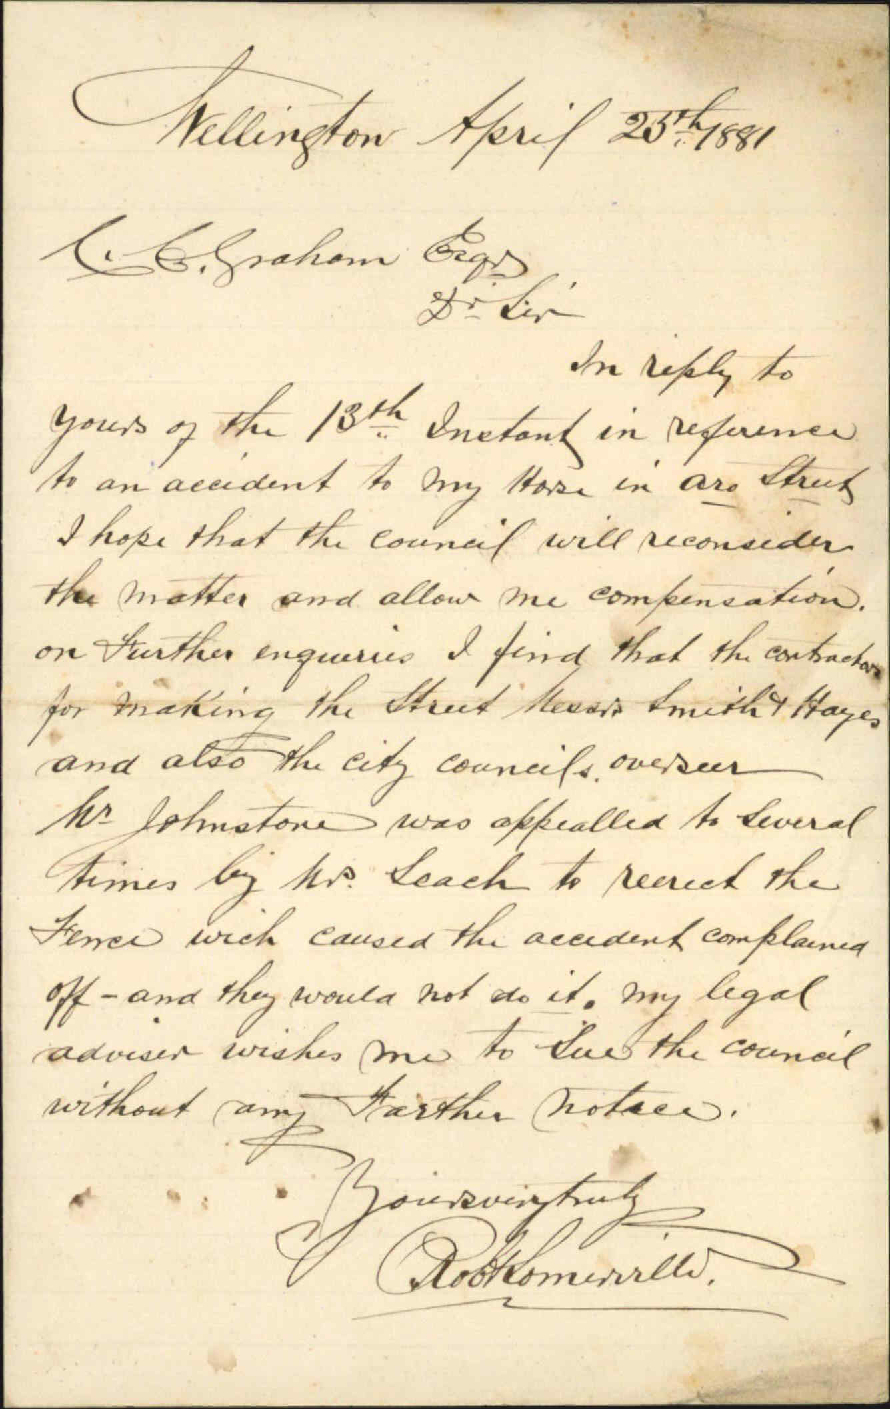 Wellington April 25th 1881
C. C. Graham Esqr
Dr Sir
In reply to
yours of the 13th Instant in reference
to an accident to my Horse in aro Street
I hope that the council will reconsider
the matter and allow me compensation.
on Further enqueries I find that the contractors
for making the Street Messrs Smith & Hayes
and also the city councils overseer
Mr Johnstone was appealled to Several
times by Mrs. Leach to reerect the
Fence wich caused the accident complained
off - and they would not do it. my legal
adviser wishes me to Sue the council
without any Farther notice.
Yours very truly
Robt Somerville.